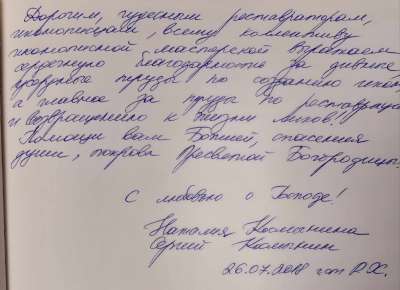 Дорогим, чудесным реставраторам,
иконописцам, всему коллективу
иконописной мастерской выражаем
сердечную благодарность за дивные
труды по созданию икон,
а главное за труды по реставрации
и возвращению к жизни ликов!
Помощи вам Божией, спасения
души, покрова Пресвятой Богородицы.
С любовью о Господе!
Наталия
Сергий
26.07.2018 г от Р.Х.